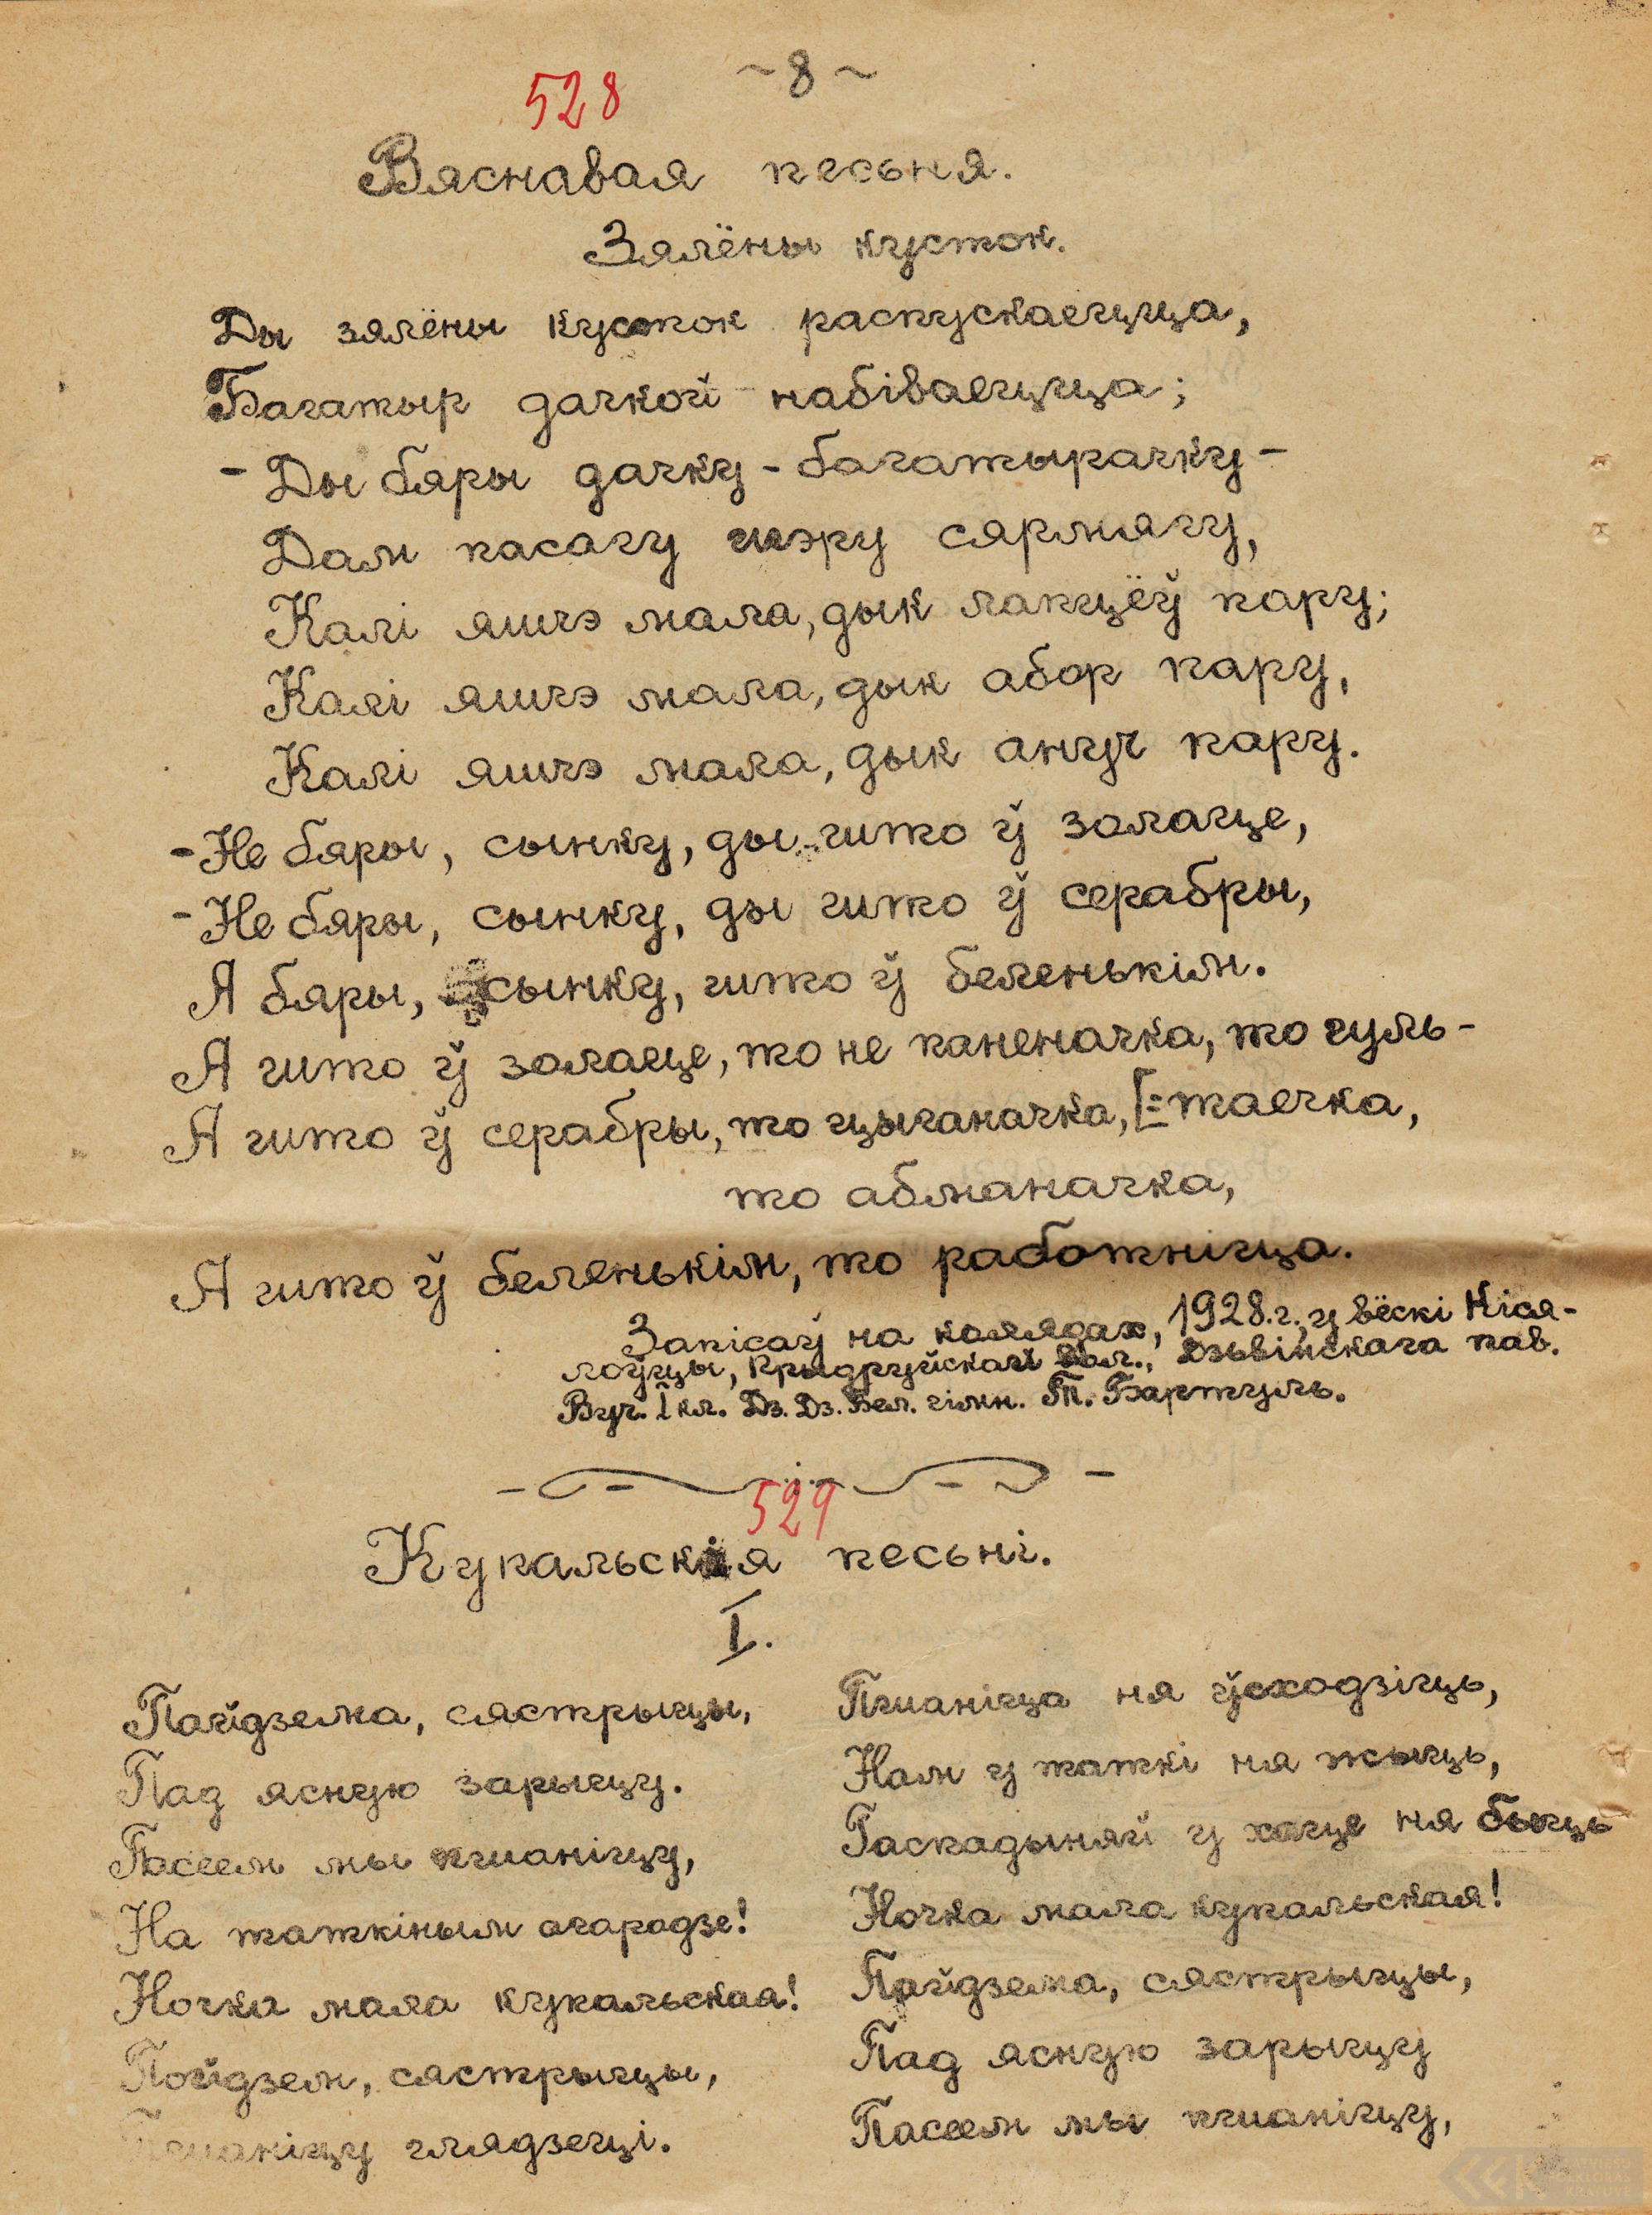 ~ 8 ~
528
Вяснавая песьня.
Зялёны кусток.
Ды зялёны кусток распускаецца,
Багатыр дачкой набіваецца;
- Ды бяры дачку - багатырачку -
Дам пасагу шэру сярмягу,
Калі яшчэ мала, дык лапцёў пару;
Калі яшчэ мала, дык абор пару,
Калі яшчэ мала, дык ануч пару.
- Не бяры, сынку, ды што ў золаце,
- Не бяры, сынку, ды што ў серабры,
А бяры, сынку, што ў беленькім.
А што ў золаце, то не паненачка, то гуль-
А што ў серабры, то цыганачка, [=таечка,
то абманачка,
А што ў беленькім, то работніца.
Запісаў на калядах, 1928.г., у вёскі Кіся-
лоўцы, Прыдруйскай вол., Дзьвінскага пав.
Вуч. I кл. Дз. Дз. Бел. гімн. Т. Бартуль.
529
Купальскія песьні.
I.
Пайдзема, сястрыцы,
Пад ясную зарыцу.
Пасеем мы пшаніцу,
На таткіным агародзе!
Ночка мала купальская!
Пойдзем, сястрыцы,
Пшаніцу глядзеці.
Пшаніца ня ўсходзіць,
Нам у таткі ня жыць,
Гаспадыняй у хаце ня быць
Ночка мала купальская!
Пайдзема, сястрыцы,
Пад ясную зарыцу
Пасеем мы пшаніцу,